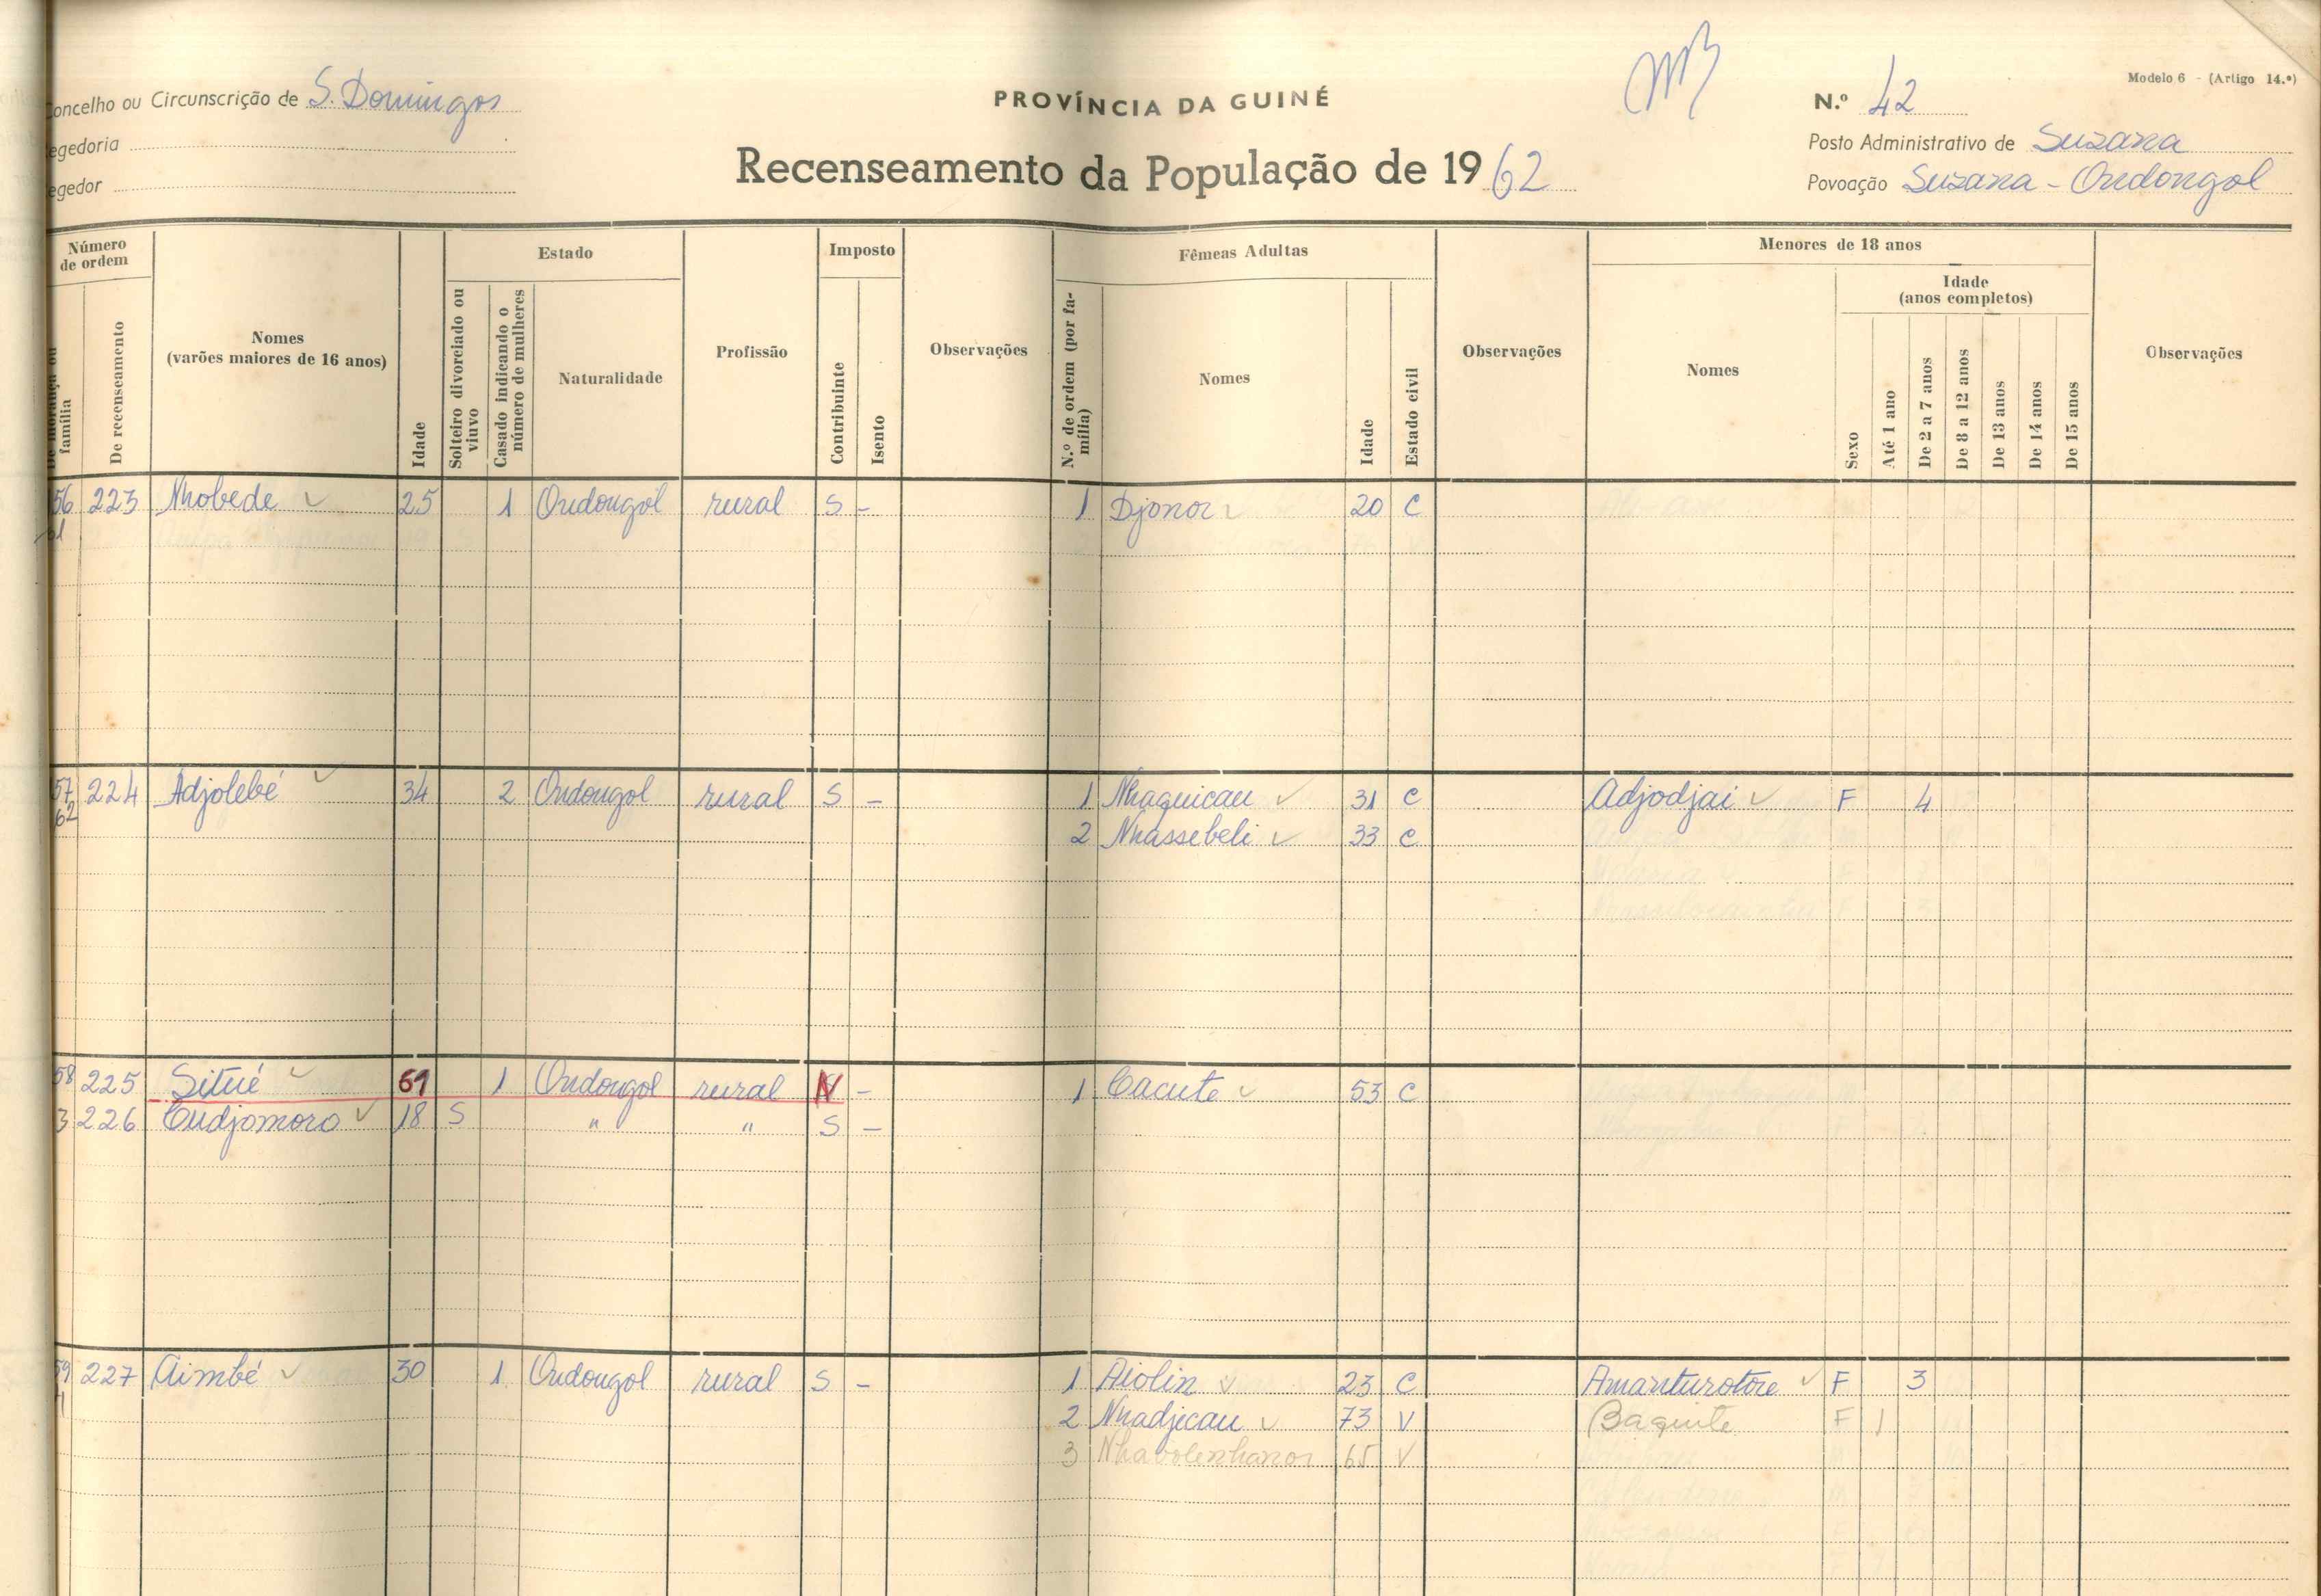 Modelo 6 - (Artigo 14.º)
oncelho ou Circunscrição de S. Domingos
PROVÍNCIA DA GUINÉ
N.º 42
egedoria
Posto Administrativo de Suzana
egedor
Recenseamento da População de 1962
Povoação Suzana - Ondongol
Número de ordem
família
De recenseamento
Nomes
(varões maiores de 16 anos)
Idade
Estado
Solteiro divorciado ou viuvo
Casado indicando o número de mulheres
Naturalidade
Profissão
Imposto
Contribuinte
Isento
Observações
Fêmeas Adultas
N.º de ordem (por família)
Nomes
Idade
Estado civil
Observações
Menores de 18 anos
Nomes
Sexo
Idade
(anos completos)
Até 1 ano
De 2 a 7 anos
De 8 a 12 anos
De 13 anos
De 14 anos
De 15 anos
Observações
56 223 Nhobede 25 1 Ondongol rural S - 1 Djonor 20 C
57 224 Adjolebé 34 2 Ondongol rural S - 1 Nhaquicau 31 C Adjodjai F 4
62 2 Nhassebeli 33 C
58 225 Situé 61 1 Ondongol rural N - 1 Cacute 53 C
3 226 Cudjomoro 18 S " " S -
59 227 Aimbé 30 1 Ondongol rural S - 1 Aiolin 23 C Amanturotore F 3
2 Nhadjecau 73 V Baquite F 1
3 Nhabolenhanor 65 V